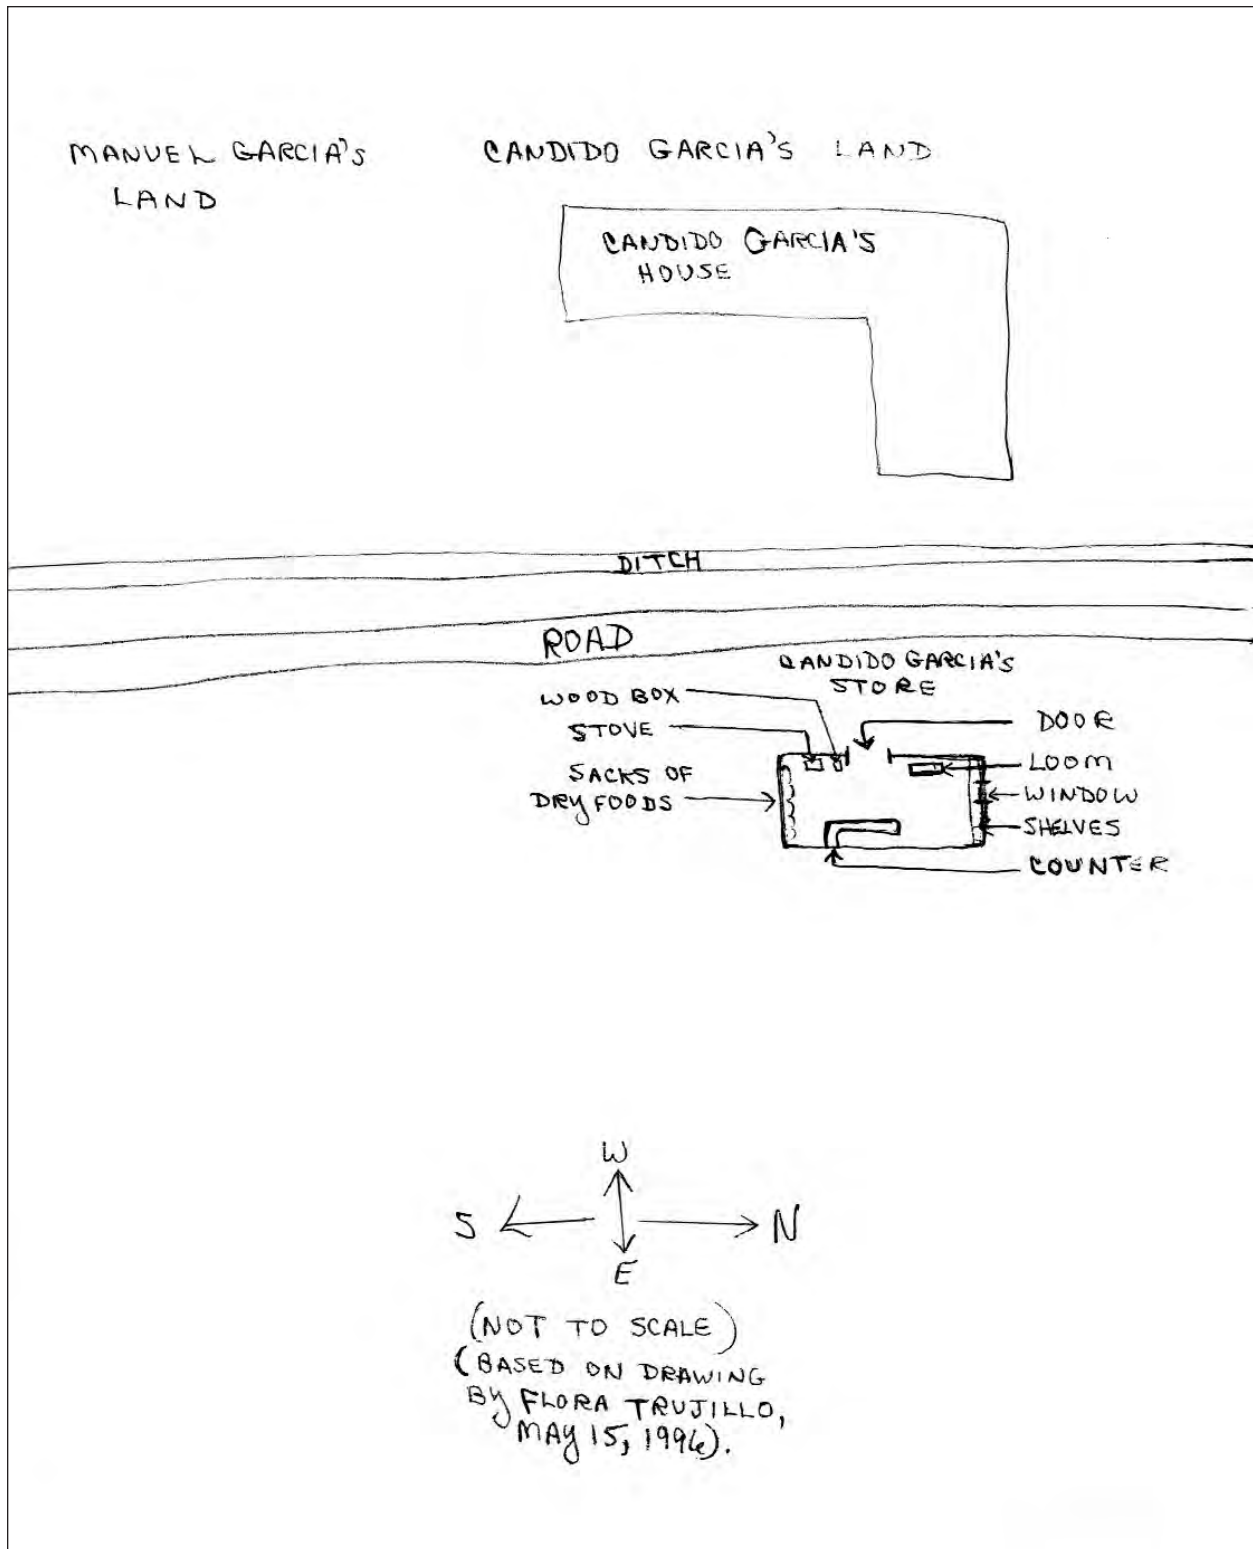 MANUEL GARCIA'S
LAND
CANDIDO GARCIA'S LAND
CANDIDO GARCIA'S
HOUSE
DITCH
ROAD
CANDIDO GARCIA'S
STORE
WOOD BOX
STOVE
SACKS OF
DRY FOODS
DOOR
LOOM
WINDOW
SHELVES
COUNTER
W
S
N
E
(NOT TO SCALE)
(BASED ON DRAWING
BY FLORA TRUJILLO,
MAY 15, 1996).